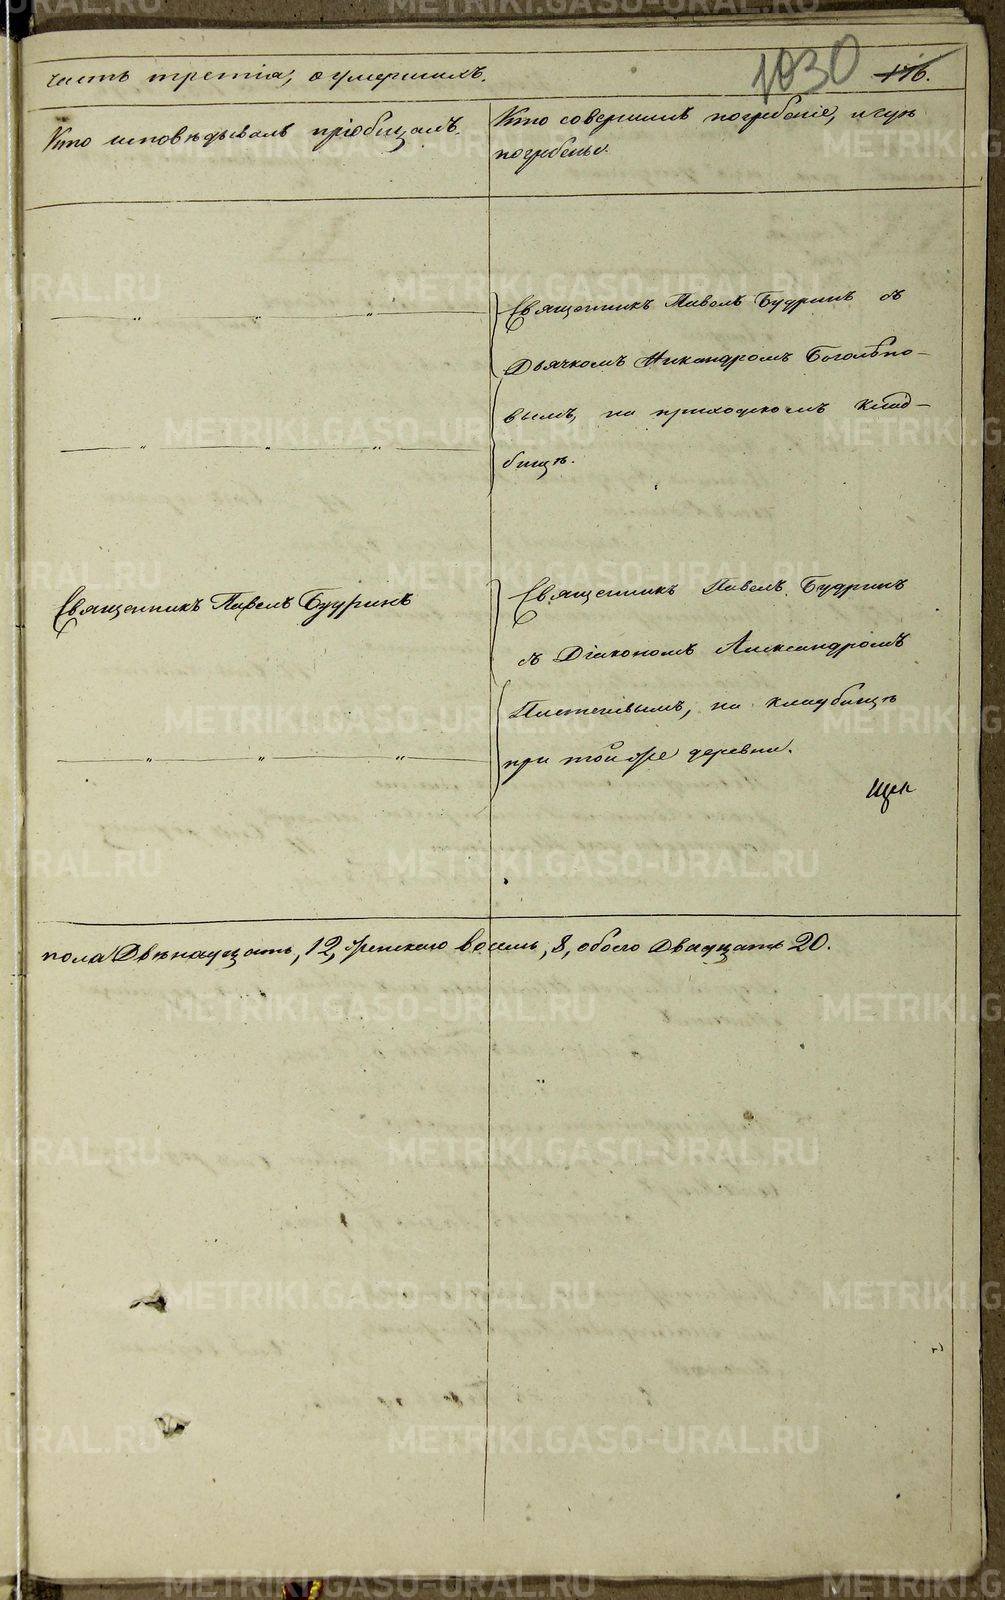 часть третія, о умершихъ.
1030
176.
Кто исповѣдывалъ пріобщалъ.
Кто совершилъ погребеніе, и гдѣ
погребены.
Священникъ Павелъ Будринъ съ
Дьячкомъ Никандромъ Боголѣпо-
вымъ, на приходскомъ клад-
бищѣ.
Священникъ Павелъ Будринъ
Священникъ Павелъ Будринъ
съ Діакономъ Александромъ
на кладбищѣ
при той же деревни.
пола Двѣнадцать, 12, женскаго восемь, 8, обоего Двадцать 20.
METRIKI.GASO-URAL.RU